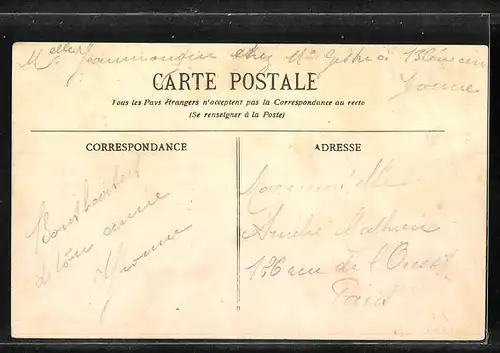 Melle Jeanmougin chez Mme à Bléneau
Yonne
CARTE POSTALE
Tous les Pays étrangers n'acceptent pas la Correspondance au recto
(Se renseigner à la Poste)
CORRESPONDANCE
ADRESSE
Bons baisers
d'ton amie
Yvonne
Mademoiselle
Amélie
136 rue de l'Ouest
Paris